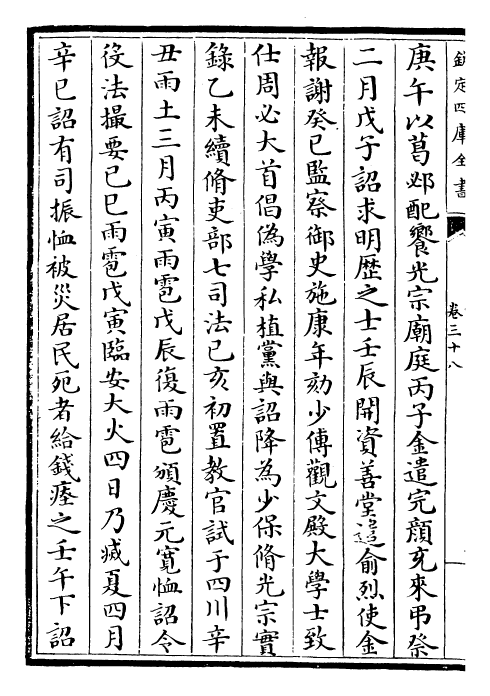 欽定四庫全書
卷三十八
庚午以葛邲配饗光宗廟庭丙子金遣完顔充來弔祭
二月戊子詔求明歴之士壬辰開資善堂遣俞烈使金
報謝癸巳監察御史施康年劾少傅觀文殿大學士致
仕周必大首倡偽學私植黨與詔降為少保脩光宗實
錄乙未續脩吏部七司法己亥初置教官試于四川辛
丑雨土三月丙寅雨雹戊辰復雨雹頒慶元寛恤詔令
役法撮要己巳雨雹戊寅臨安大火四日乃滅夏四月
辛巳詔有司振恤被災居民死者給錢瘞之壬午下詔